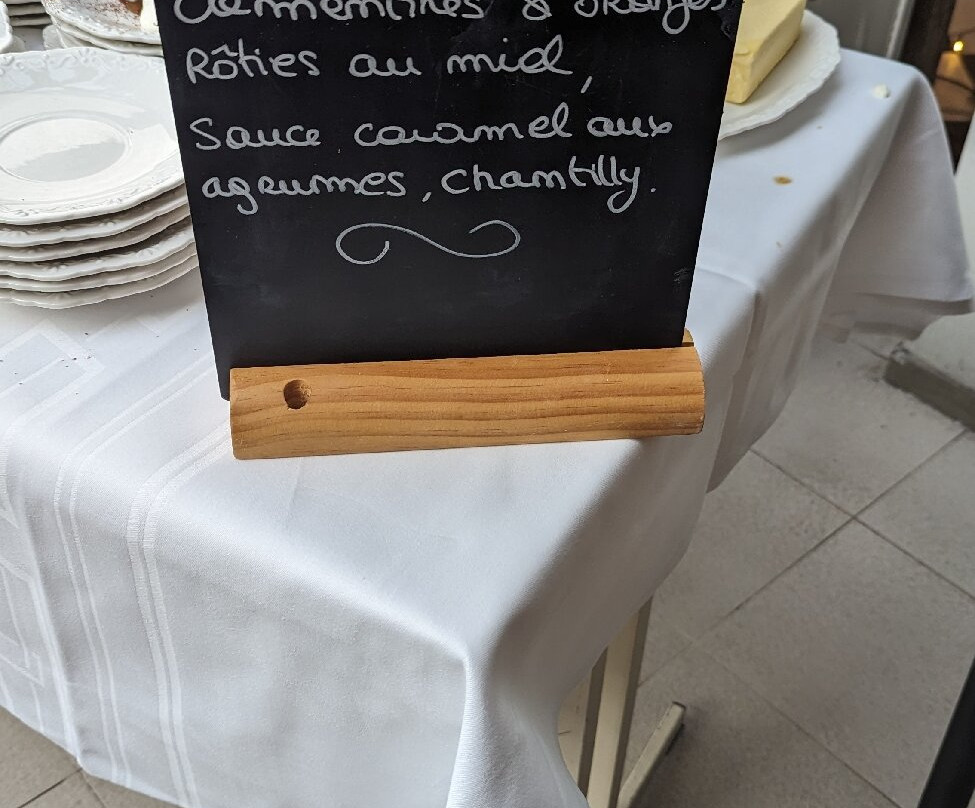 Clémentines & oranges
Rôties au miel,
Sauce caramel aux
agrumes, chantilly.